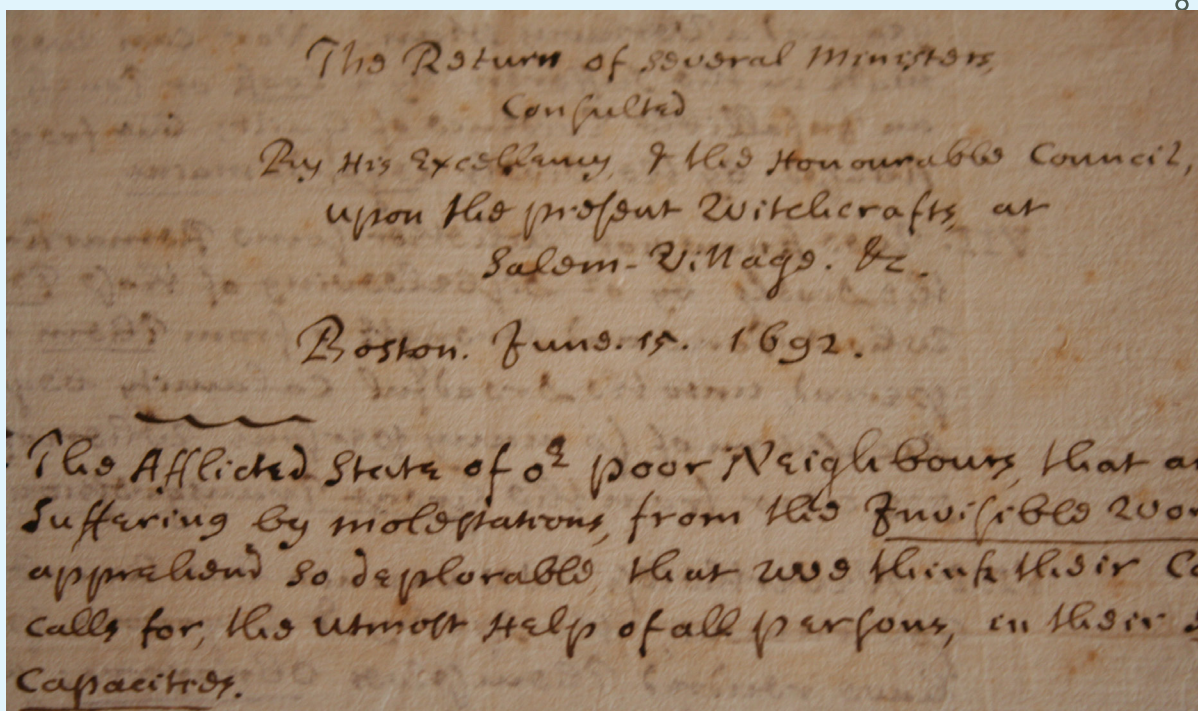 The Return of several Ministers
Consulted
By His Excellency, & the Honourable Council,
upon the present Witchcrafts, at
Salem-Village. &c.
Boston. June. 15. 1692.
The Afflicted State of oᵉ poor Neighbours, that a
Suffering by molestations, from the Invisible Wor
apprehend so deplorable, that wee think their Co
calls for, the utmost Help of all persons, in their
Capacities.